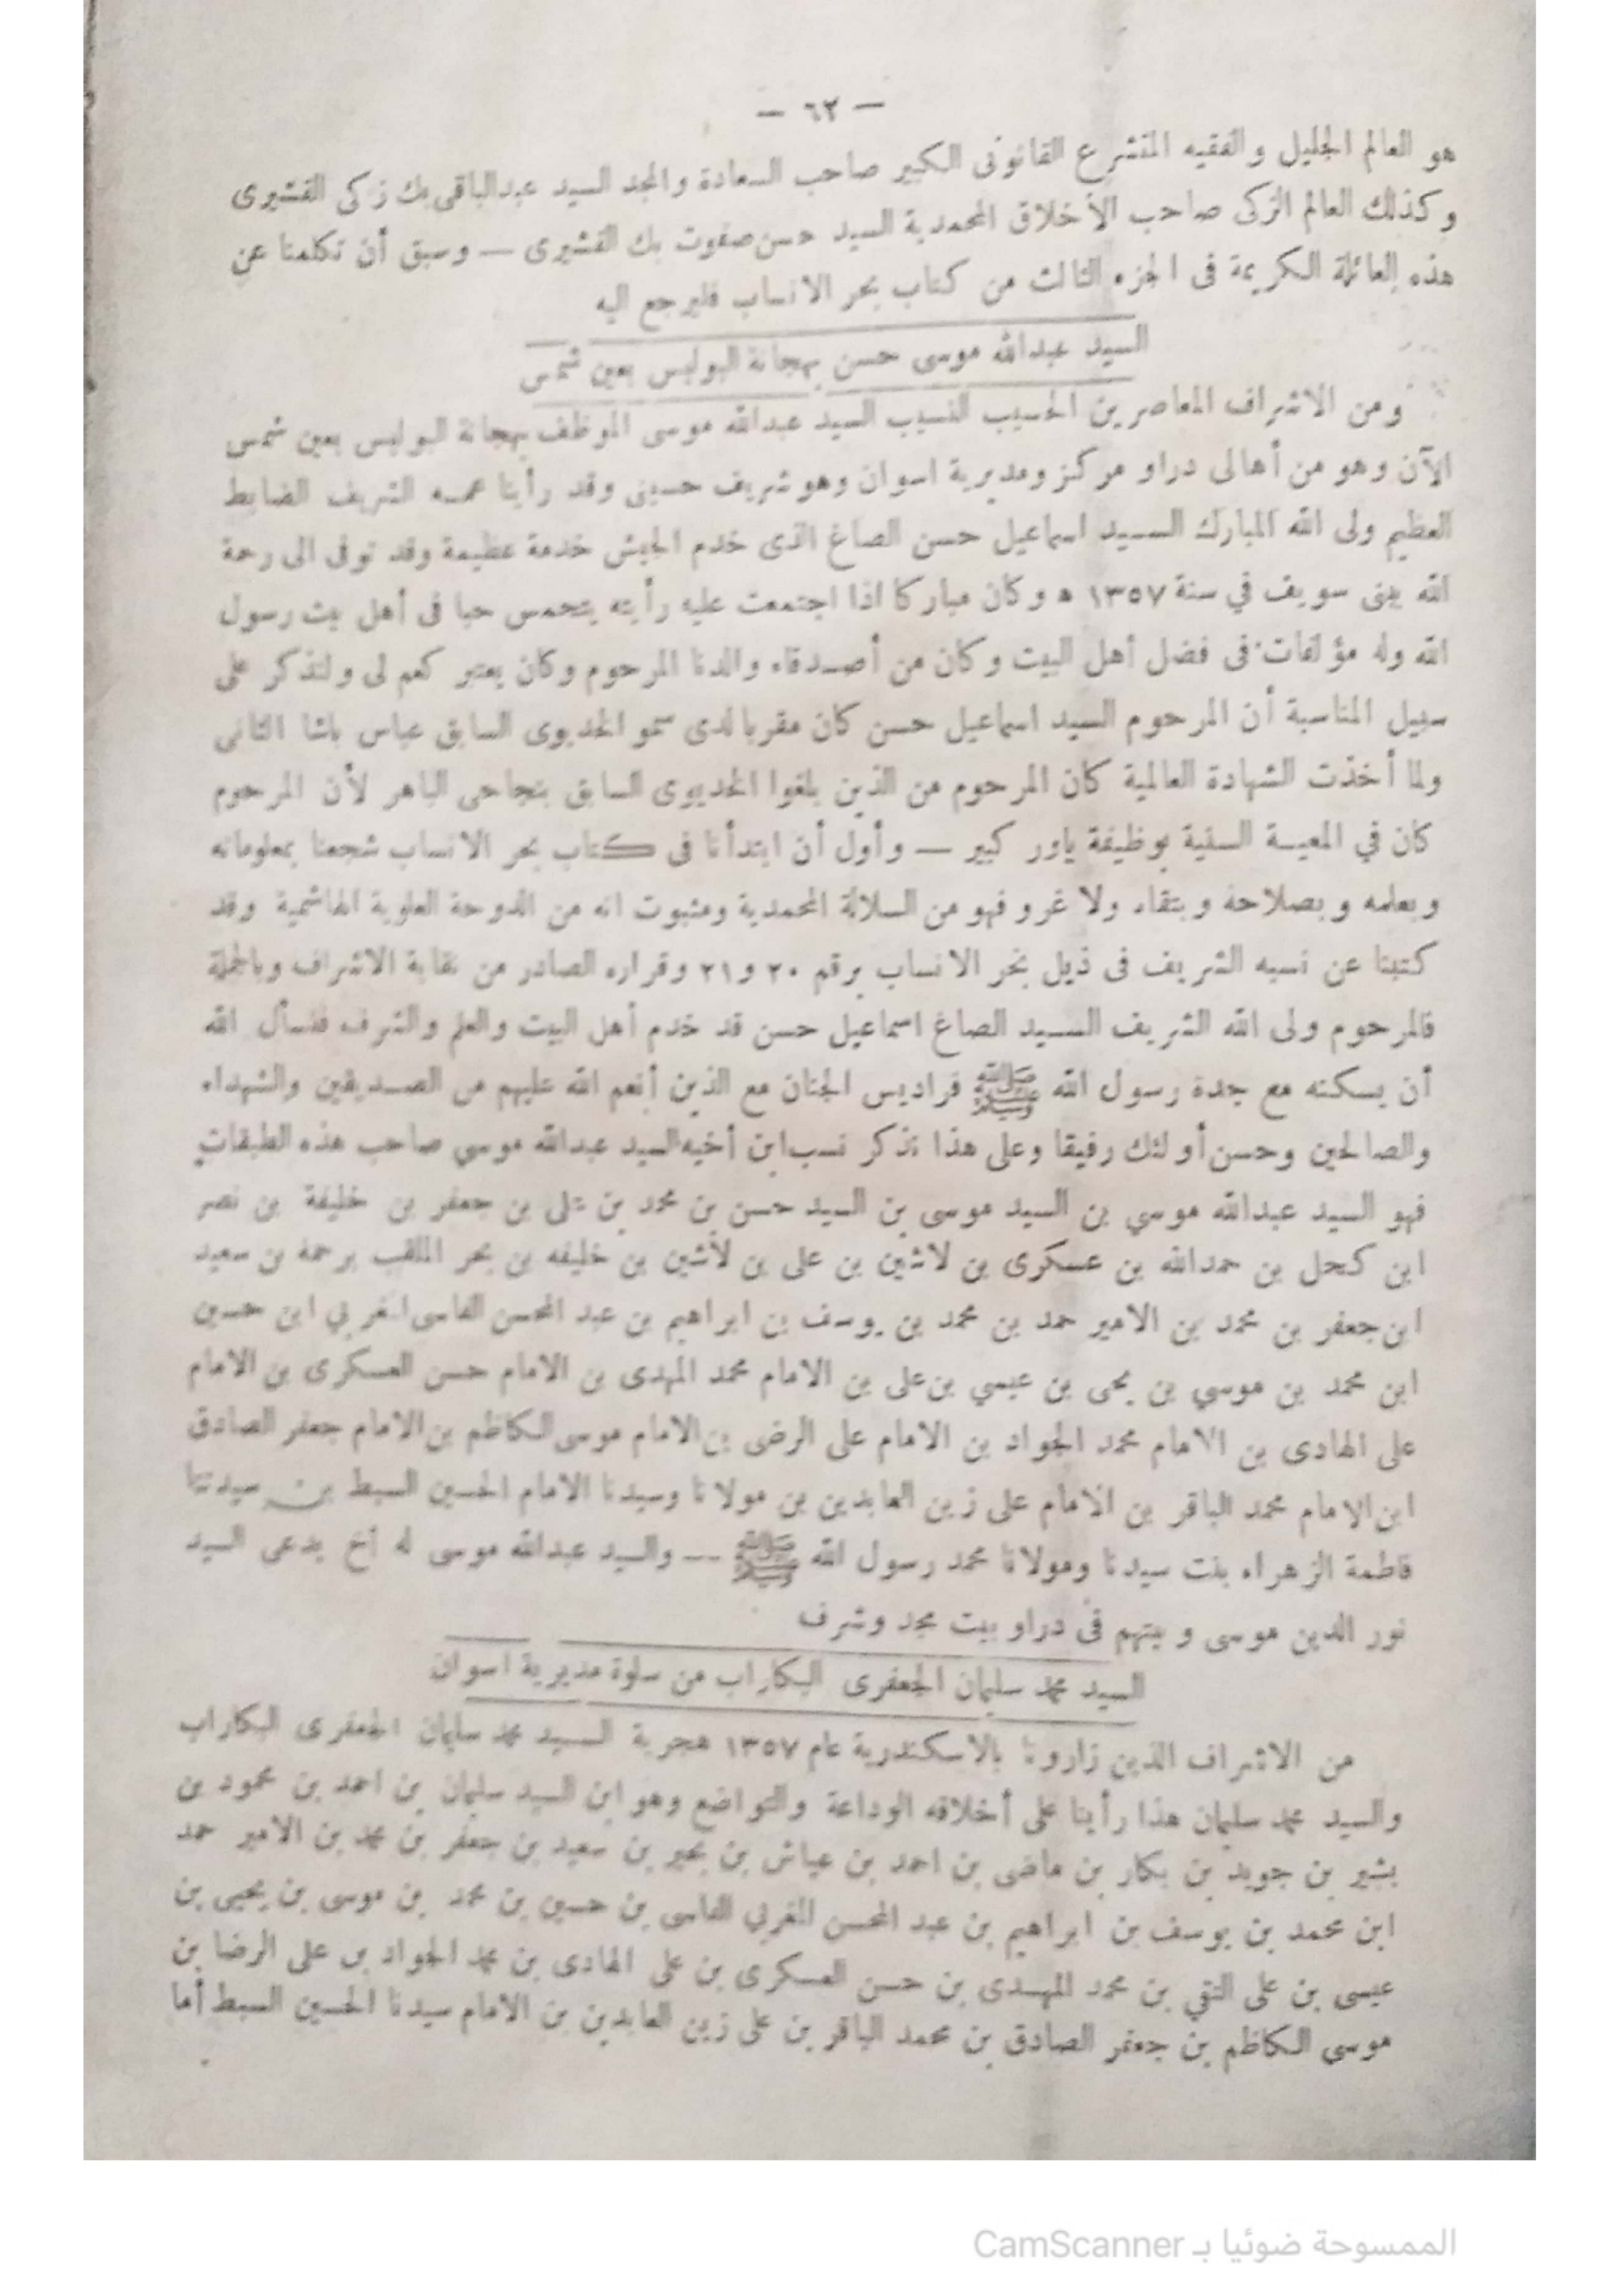 — ٦٢ —
هو العالم الجليل والفقيه المتشرع القانونى الكبير صاحب السعادة والمجد السيد عبدالباقى بك زكى القشيرى
وكذلك العالم الزكى صاحب الأخلاق المحمدية السيد حسن صفوت بك القشيرى — وسبق أن تكلمنا عن
هذه العائلة الكريمة فى الجزء الثالث من كتاب بحر الانساب فليرجع اليه
السيد عبدالله موسى حسن بهجانة البوليس بعين شمس
ومن الاشراف المعاصرين الحسيب النسيب السيد عبدالله موسى الموظف بهجانة البوليس بعين شمس
الآن وهو من أهالى دراو مركز ومديرية اسوان وهو شريف حسينى وقد رأينا عمه الشريف الضابط
العظيم ولى الله المبارك السيد اسماعيل حسن الصاغ الذى خدم الجيش خدمة عظيمة وقد توفى الى رحمة
الله ببنى سويف في سنة ١٣٥٧ ه وكان مباركا اذا اجتمعت عليه رأيته يتحمس حبا فى أهل بيت رسول
الله وله مؤلفات فى فضل أهل البيت وكان من أصدقاء والدنا المرحوم وكان يعتبر كعم لى ولنذكر على
سبيل المناسبة أن المرحوم السيد اسماعيل حسن كان مقربا لدى سمو الخديوى السابق عباس باشا الثانى
ولما أخذت الشهادة العالمية كان المرحوم من الذين بلغوا الخديوى السابق بنجاحى الباهر لأن المرحوم
كان في المعية السنية بوظيفة ياور كبير — وأول أن ابتدأنا فى كتاب بحر الانساب شجعنا بمعلوماته
وبعلمه وبصلاحه وبتقاه ولا غرو فهو من السلالة المحمدية ومثبوت انه من الدوحة العلوية الهاشمية وقد
كتبنا عن نسبه الشريف فى ذيل بحر الانساب برقم ٢٠ و٢١ وقراره الصادر من نقابة الاشراف وبالجملة
فالمرحوم ولى الله الشريف السيد الصاغ اسماعيل حسن قد خدم أهل البيت والعلم والشرف فنسأل الله
أن يسكنه مع جدة رسول الله ﷺ فراديس الجنان مع الذين أنعم الله عليهم من الصديقين والشهداء
والصالحين وحسن أولئك رفيقا وعلى هذا نذكر نسب ابن أخيه السيد عبدالله موسي صاحب هذه الطبقات
فهو السيد عبدالله موسي بن السيد موسى بن السيد حسن بن محمد بن على بن جعفر بن خليفة بن نصر
ابن كحل بن حمدالله بن عسكرى بن لاشين بن على بن لاشين بن خليفه بن بحر الملقب برحمة بن سعيد
ابن جعفر بن محمد بن الامير حمد بن محمد بن يوسف بن ابراهيم بن عبد المحسن الفاسى المغربي ابن حسين
ابن محمد بن موسي بن يحى بن عيسي بن على بن الامام محمد المهدى بن الامام حسن العسكرى بن الامام
على الهادى بن الامام محمد الجواد بن الامام على الرضى بن الامام موسى الكاظم بن الامام جعفر الصادق
ابن الامام محمد الباقر بن الامام على زين العابدين بن مولانا وسيدنا الامام الحسين السبط بن سيدتنا
فاطمة الزهراء بنت سيدنا ومولانا محمد رسول الله ﷺ — والسيد عبدالله موسى له أخ يدعى السيد
نور الدين موسى وبيتهم فى دراو بيت مجد وشرف
السيد محمد سليمان الجعفرى البكاراب من سلوة مديرية اسوان
من الاشراف الذين زارونا بالاسكندرية عام ١٣٥٧ هجرية السيد محمد سليمان الجعفرى البكاراب
والسيد محمد سليمان هذا رأينا على أخلاقه الوداعة والتواضع وهو ابن السيد سليمان بن احمد بن محمود بن
بشير بن جويد بن بكار بن ماضى بن احمد بن عياش بن بحير بن سعيد بن جعفر بن محمد بن الامير حمد
ابن محمد بن يوسف بن ابراهيم بن عبد المحسن المغربي الفاسى بن حسين بن محمد بن موسى بن يحيى بن
عيسى بن على التقي بن محمد المهدى بن حسن العسكرى بن على الهادى بن محمد الجواد بن على الرضا بن
موسى الكاظم بن جعفر الصادق بن محمد الباقر بن على زين العابدين بن الامام سيدنا الحسين السبط أما
الممسوحة ضوئيا بـ CamScanner